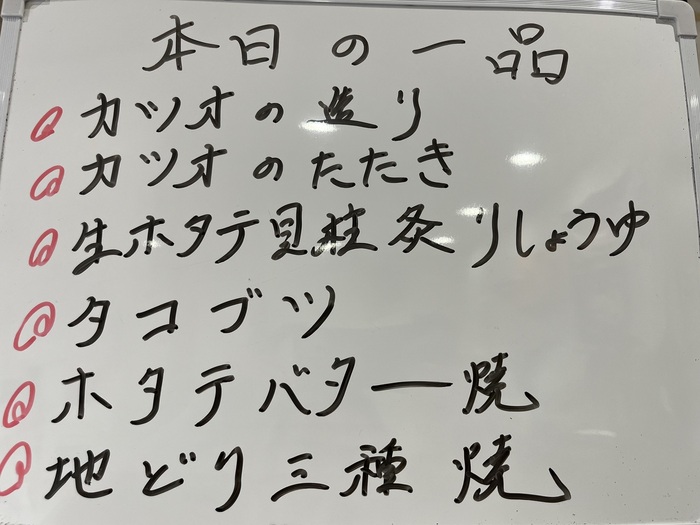 本日の一品
カツオの造り
カツオのたたき
生ホタテ貝柱炙りしょうゆ
タコブツ
ホタテバター焼
地どり三種焼